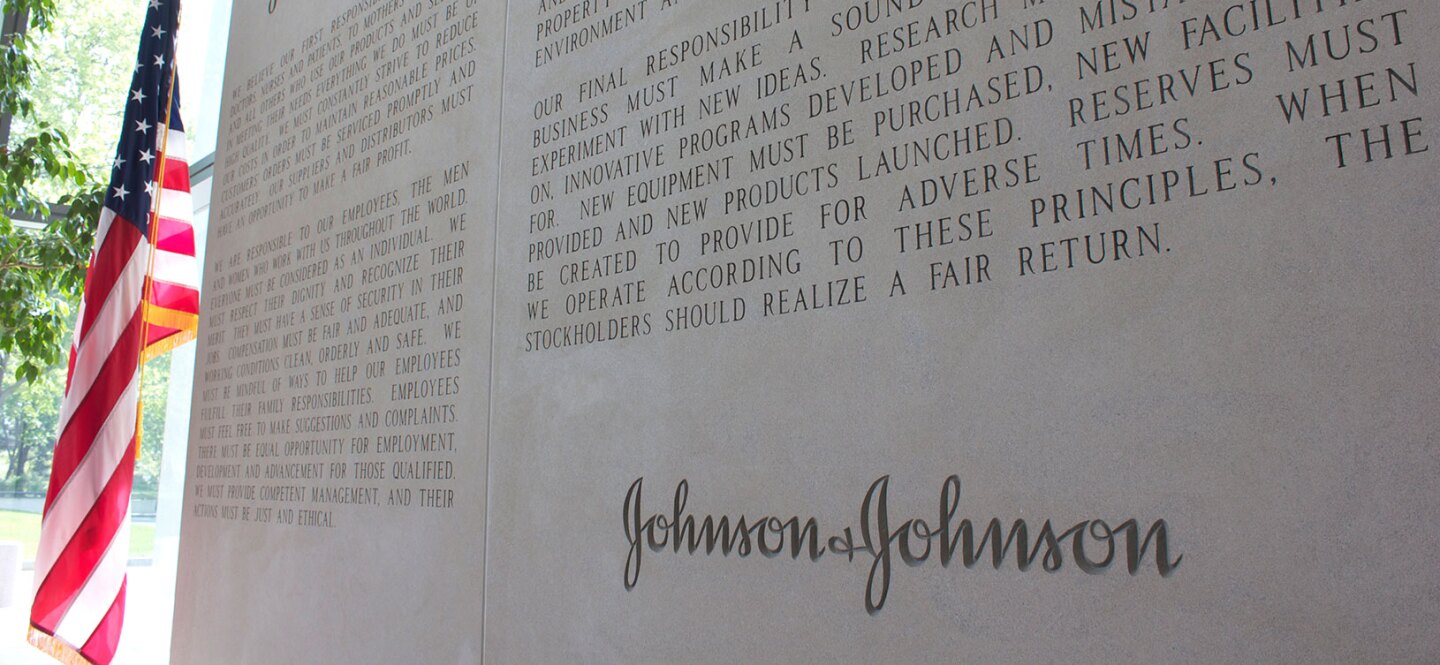 WE BELIEVE OUR FIRST RESPONSI
DOCTORS, NURSES AND PATIENTS, TO MOTHERS
AND ALL OTHERS WHO USE OUR PRODUCTS AND SE
IN MEETING THEIR NEEDS EVERYTHING WE DO MUST BE OF
HIGH QUALITY. WE MUST CONSTANTLY STRIVE TO REDUCE
OUR COSTS IN ORDER TO MAINTAIN REASONABLE PRICES.
CUSTOMERS' ORDERS MUST BE SERVICED PROMPTLY AND
ACCURATELY. OUR SUPPLIERS AND DISTRIBUTORS MUST
HAVE AN OPPORTUNITY TO MAKE A FAIR PROFIT.
WE ARE RESPONSIBLE TO OUR EMPLOYEES, THE MEN
AND WOMEN WHO WORK WITH US THROUGHOUT THE WORLD.
EVERYONE MUST BE CONSIDERED AS AN INDIVIDUAL. WE
MUST RESPECT THEIR DIGNITY AND RECOGNIZE THEIR
MERIT. THEY MUST HAVE A SENSE OF SECURITY IN THEIR
JOBS. COMPENSATION MUST BE FAIR AND ADEQUATE, AND
WORKING CONDITIONS CLEAN, ORDERLY AND SAFE. WE
MUST BE MINDFUL OF WAYS TO HELP OUR EMPLOYEES
FULFILL THEIR FAMILY RESPONSIBILITIES. EMPLOYEES
MUST FEEL FREE TO MAKE SUGGESTIONS AND COMPLAINTS.
THERE MUST BE EQUAL OPPORTUNITY FOR EMPLOYMENT,
DEVELOPMENT AND ADVANCEMENT FOR THOSE QUALIFIED.
WE MUST PROVIDE COMPETENT MANAGEMENT, AND THEIR
ACTIONS MUST BE JUST AND ETHICAL.
PROPERTY
ENVIRONMENT A
OUR FINAL RESPONSIBILITY
BUSINESS MUST MAKE A SOUND
EXPERIMENT WITH NEW IDEAS. RESEARCH M
ON, INNOVATIVE PROGRAMS DEVELOPED AND MISTA
FOR. NEW EQUIPMENT MUST BE PURCHASED, NEW FACILITI
PROVIDED AND NEW PRODUCTS LAUNCHED. RESERVES MUST
BE CREATED TO PROVIDE FOR ADVERSE TIMES. WHEN
WE OPERATE ACCORDING TO THESE PRINCIPLES, THE
STOCKHOLDERS SHOULD REALIZE A FAIR RETURN.
Johnson & Johnson